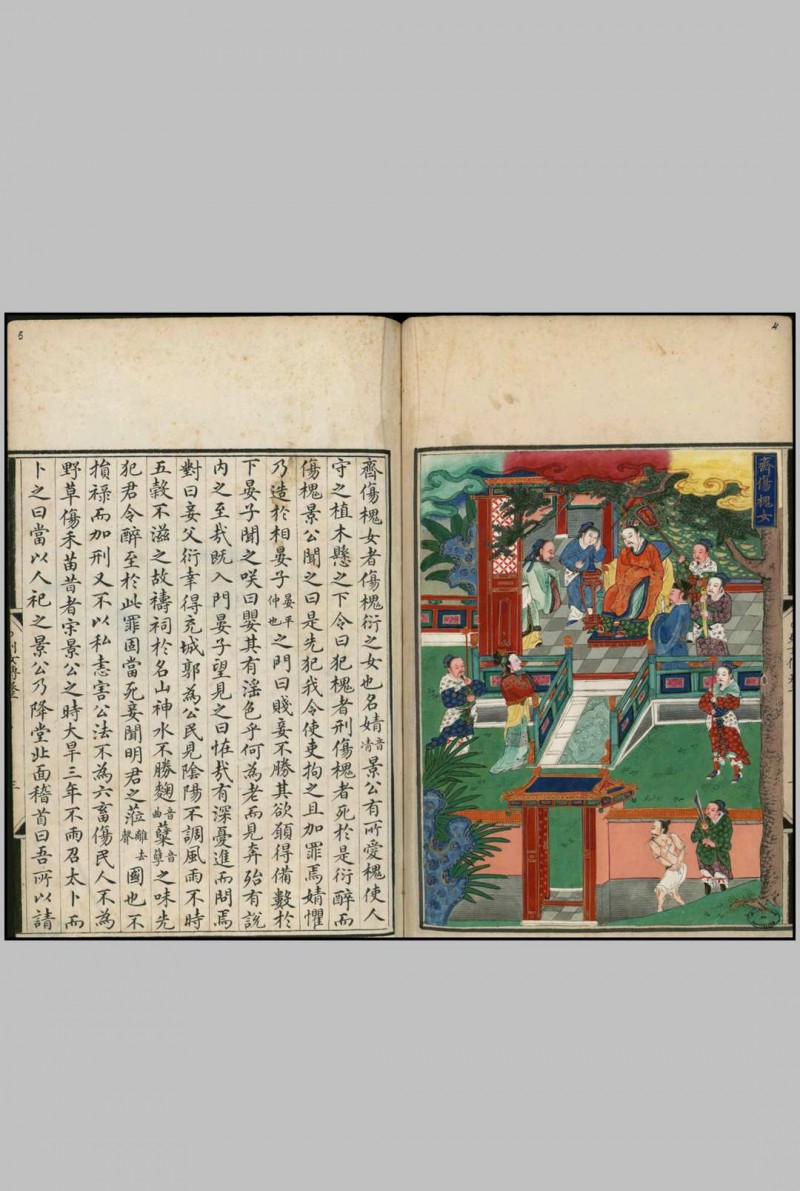 4
齊傷槐女
5
齊傷槐女者傷槐衍之女也名婧音清景公有所愛槐使人
守之植木懸之下令曰犯槐者刑傷槐者死於是衍醉而
傷槐景公聞之曰是先犯我令使吏拘之且加罪焉婧懼
乃造於相晏子晏平仲也之門曰賤妾不勝其欲願得備數於
下晏子聞之咲曰嬰其有淫色乎何為老而見奔殆有說
內之至哉既入門晏子望見之曰恠哉有深憂進而問焉
對曰妾父衍幸得充城郭為公民見陰陽不調風雨不時
五穀不滋之故禱祠於名山神水不勝麴音曲蘖音孽之味先
犯君令醉至於此罪固當死妾聞明君之蒞離去聲國也不
損祿而加刑又不以私恚害公法不為六畜傷民人不為
野草傷禾苗昔者宋景公之時大旱三年不雨召太卜而
卜之曰當以人祀之景公乃降堂北面稽首曰吾所以請